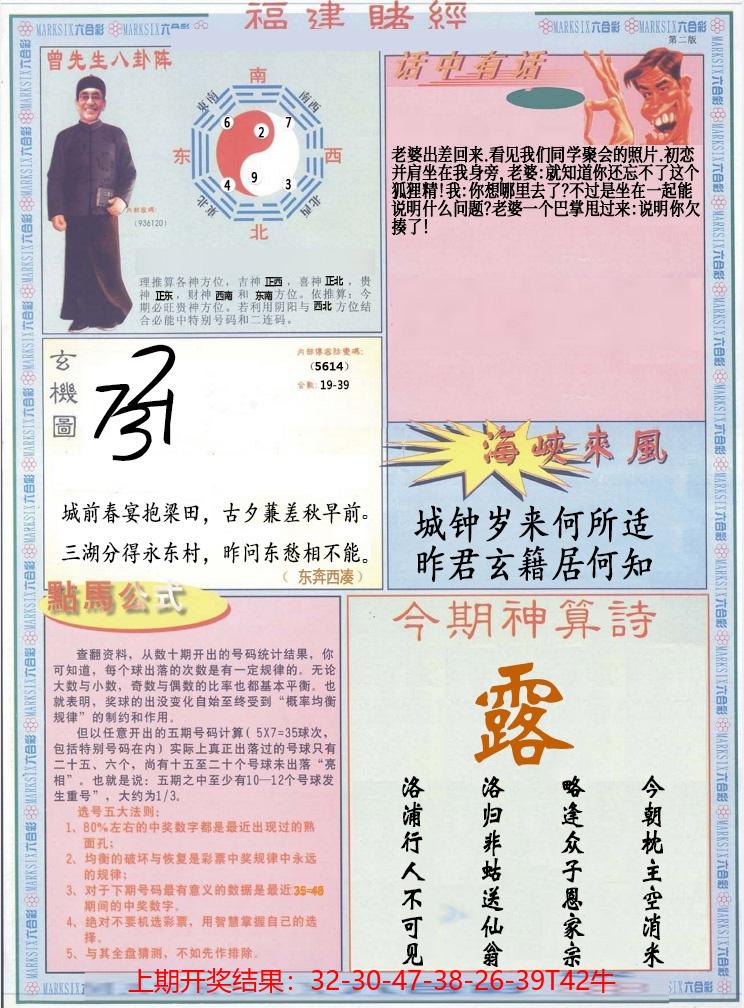 福建賭經
MARKSIX六合彩
MARKSIX六合彩
MARKSIX六合彩
MARKSIX六合彩
第二版
曾先生八卦阵
南
东南
南西
6
2
7
东
西
4
9
3
東北
北西
北
内部密碼:
(936120)
理推算各神方位，吉神 正西 ，喜神 正北 ，贵
神 正东 ，财神 西南 和 东南 方位。依推算：今
期必旺贵神方位。若利用阴阳与 西北 方位结
合必能中特别号码和二连码。
话中有话
老婆出差回来.看见我们同学聚会的照片.初恋
并肩坐在我身旁, 老婆:就知道你还忘不了这个
狐狸精!我:你想哪里去了?不过是坐在一起能
说明什么问题?老婆一个巴掌甩过来:说明你欠
揍了!
玄機圖
内部傳密防變碼:
(5614)
合數: 19-39
城前春宴抱梁田，古夕蒹差秋早前。
三湖分得永东村，昨问东愁相不能。
（ 东奔西凑）
海峽來風
城钟岁来何所适
昨君玄籍居何知
點馬公式
查翻资料，从数十期开出的号码统计结果，你
可知道，每个球出落的次数是有一定规律的。无论
大数与小数，奇数与偶数的比率也都基本平衡。也
就表明，奖球的出没变化自始至终受到“概率均衡
规律”的制约和作用。
但以任意开出的五期号码计算( 5X7=35球次，
包括特别号码在内) 实际上真正出落过的号球只有
二十五、六个，尚有十五至二十个号球未出落“亮
相”。也就是说：五期之中至少有10—12个号球发
生重号”，大约为1/3。
选号五大法则:
1、80%左右的中奖数字都是最近出现过的熟
面孔;
2、均衡的破坏与恢复是彩票中奖规律中永远
的规律;
3、对于下期号码最有意义的数据是最近35-48
期间的中奖数字。
4、绝对不要机选彩票，用智慧掌握自己的选
择。
5、与其全盘猜测，不如先作排除.
今期神算詩
露
今朝枕主空消米
略逢众子恩家宗
洛归非蛄送仙翁
洛浦行人不可见
上期开奖结果：32-30-47-38-26-39T42牛